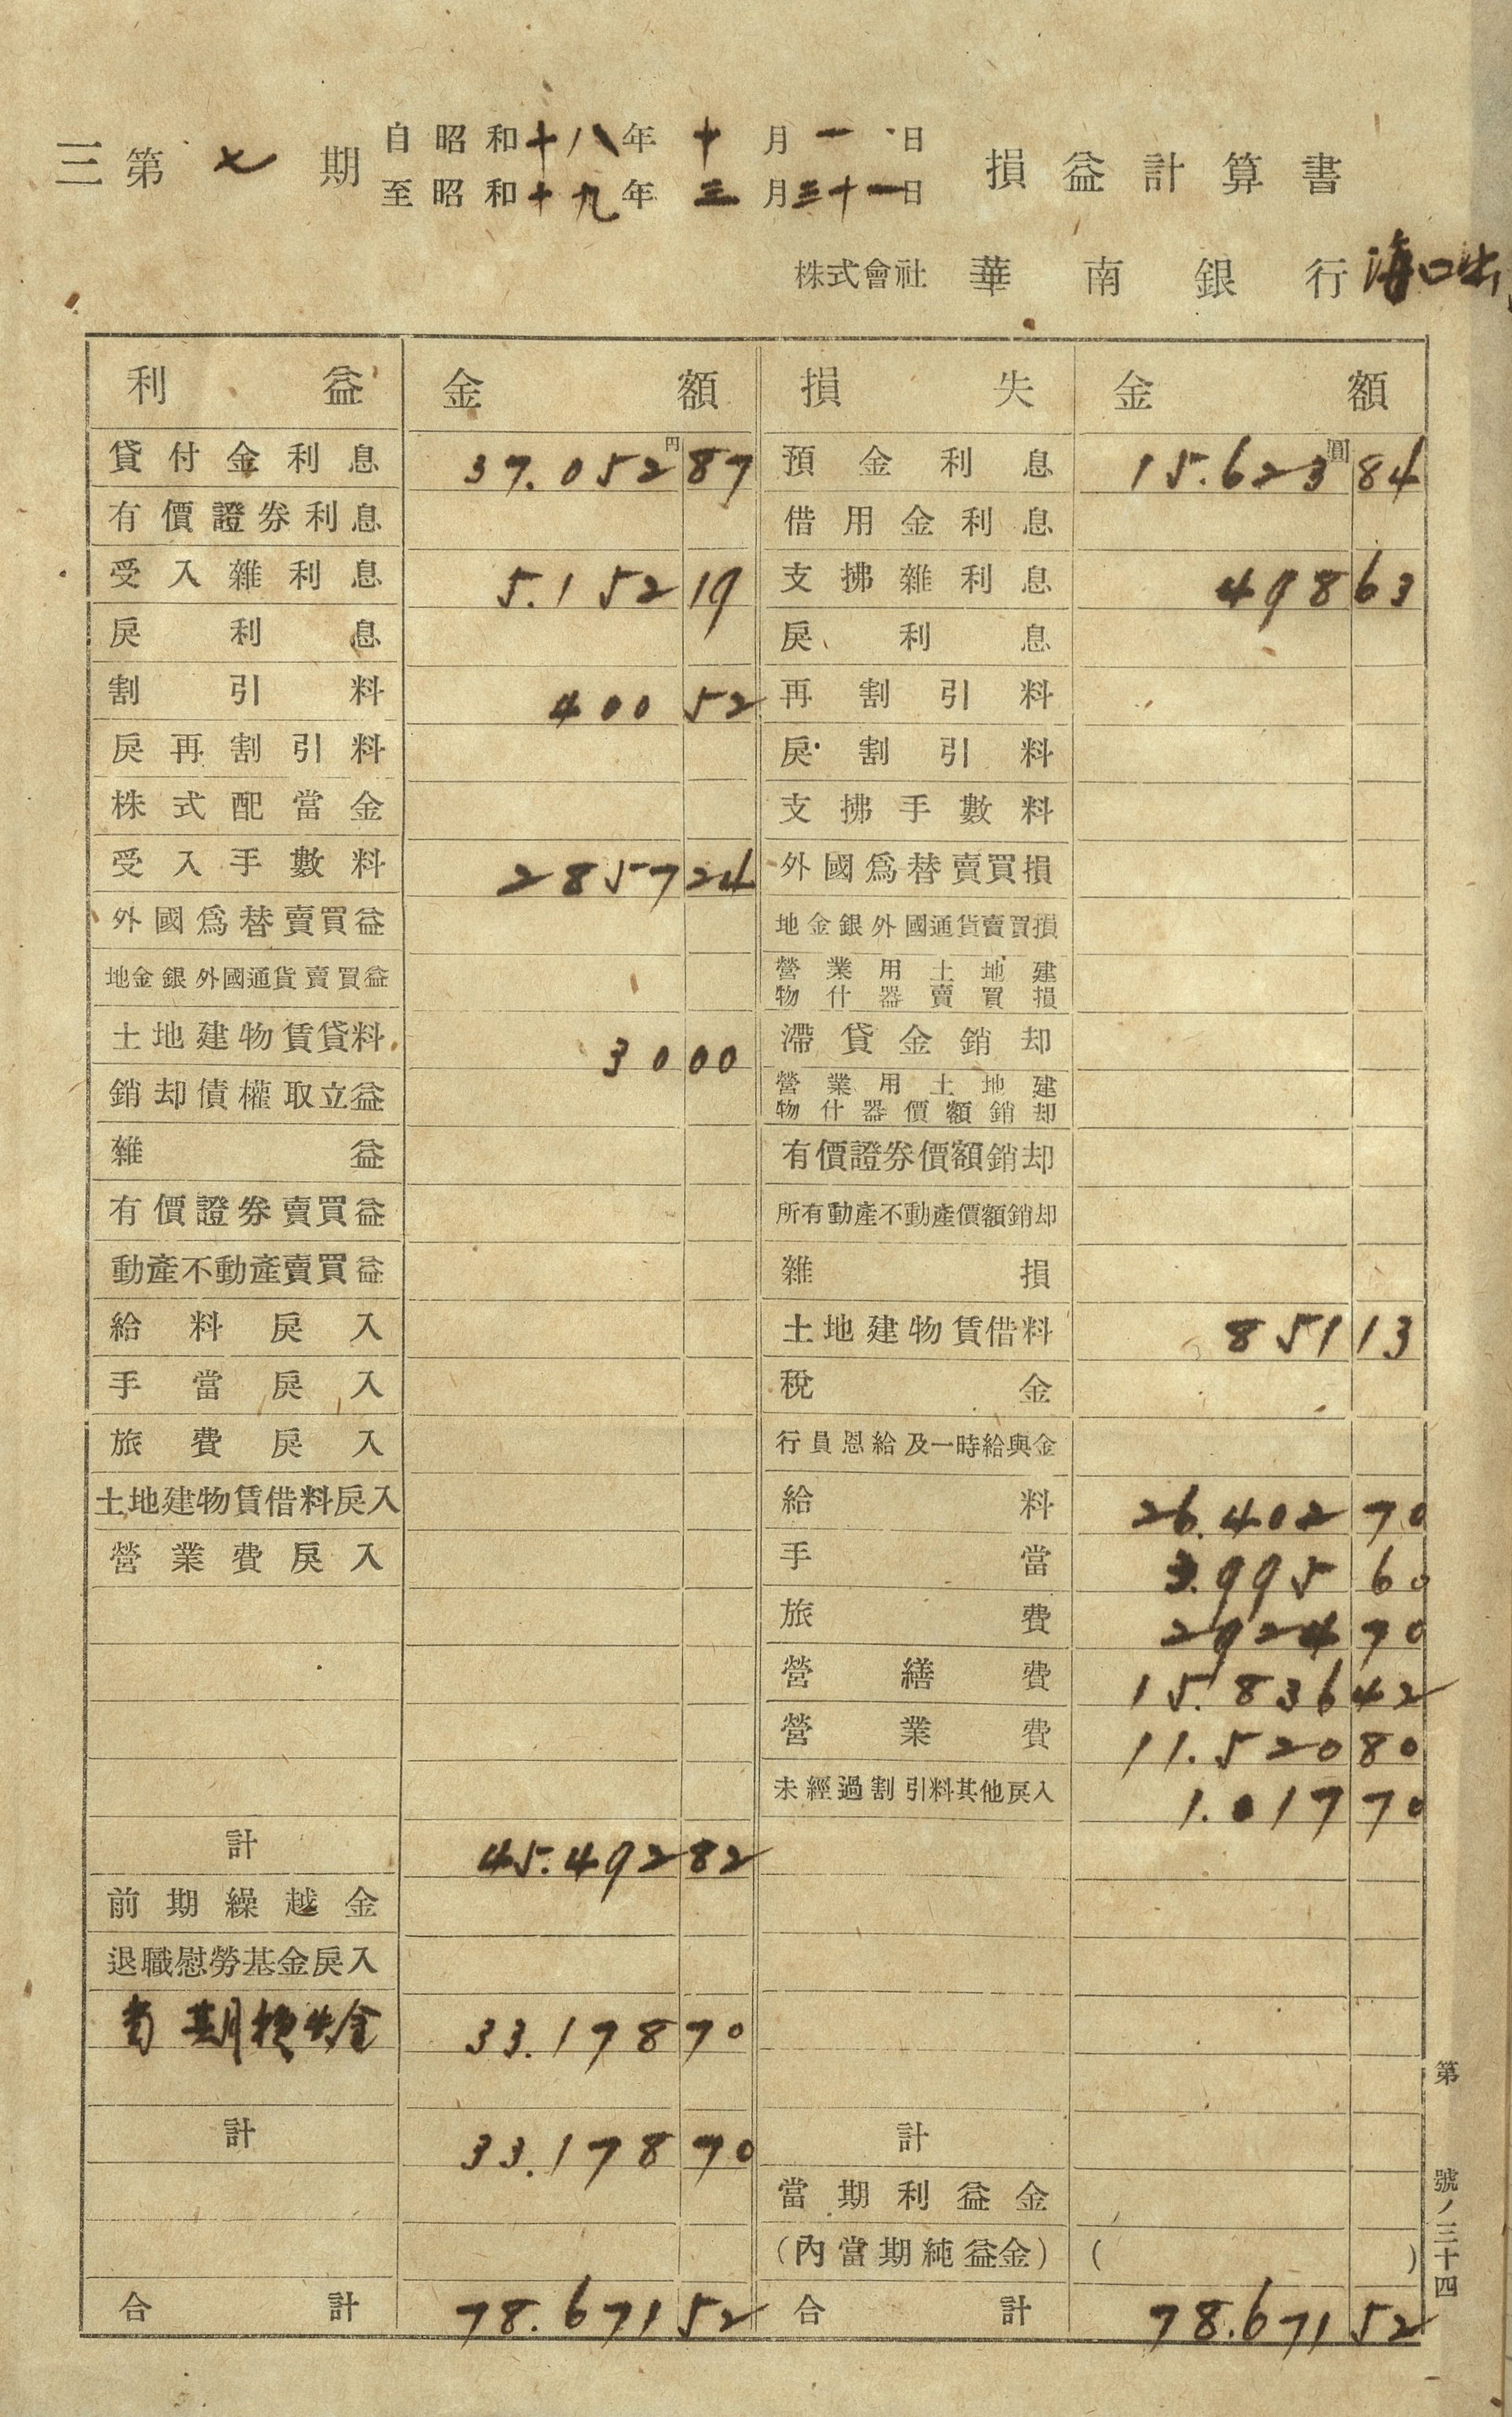 三 第 七 期 自昭和十八年十月一日 損益計算書
至昭和十九年三月三十一日
株式會社 華南銀行 海口
利益 金額 損失 金額
貸付金利息 37.052円87 預金利息 15.623圓84
有價證券利息 借用金利息
受入雜利息 5.152 19 支拂雜利息 498 63
戾利息 戾利息
割引料 400 52 再割引料
戾再割引料 戾割引料
株式配當金 支拂手數料
受入手數料 2857 24 外國爲替賣買損
外國爲替賣買益 地金銀外國通貨賣買損
地金銀外國通貨賣買益 營業用土地建物什器賣買損
土地建物賃貸料 30 00 滯貸金銷却
銷却債權取立益 營業用土地建物什器價額銷却
雜益 有價證券價額銷却
有價證券賣買益 所有動產不動產價額銷却
動產不動產賣買益 雜損
給料戾入 土地建物賃借料 851 13
手當戾入 稅金
旅費戾入 行員恩給及一時給與金
土地建物賃借料戾入 給料 26.402 70
營業費戾入 手當 3.995 60
旅費 2924 70
營繕費 15.836 42
營業費 11.520 80
未經過割引料其他戾入 1.017 70
計 45.492 82
前期繰越金
退職慰勞基金戾入
当期損失金 33.178 70
計 33.178 70 計
當期利益金
(內當期純益金) ( )
合計 78.671 52 合計 78.671 52
第 號ノ三十四